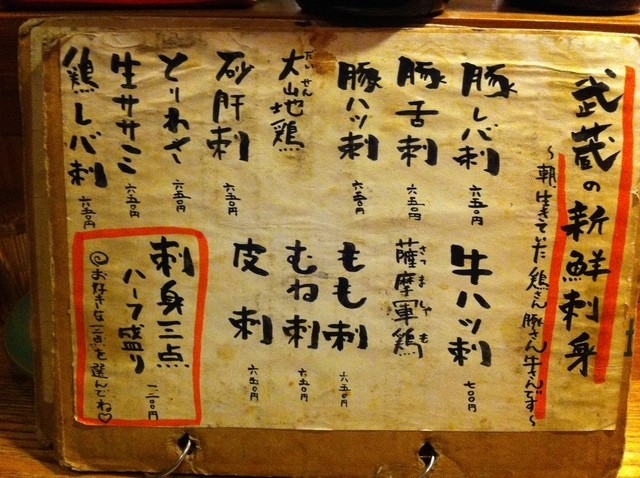 武蔵の新鮮刺身
～朝、生きてた鶏さん豚さん牛さんです～
豚レバ刺 六五〇円
豚舌刺 六五〇円
豚ハツ刺 六五〇円
大山地鶏
だいせん
砂肝刺 六五〇円
とりわさ 六五〇円
生ササミ 六五〇円
鶏レバ刺 六五〇円
牛ハツ刺 七〇〇円
薩摩軍鶏
さつましゃも
もも刺 六五〇円
むね刺 六五〇円
皮刺 六五〇円
刺身三点
ハーフ盛り 一二〇〇円
◎お好きな三点を選んでね♡